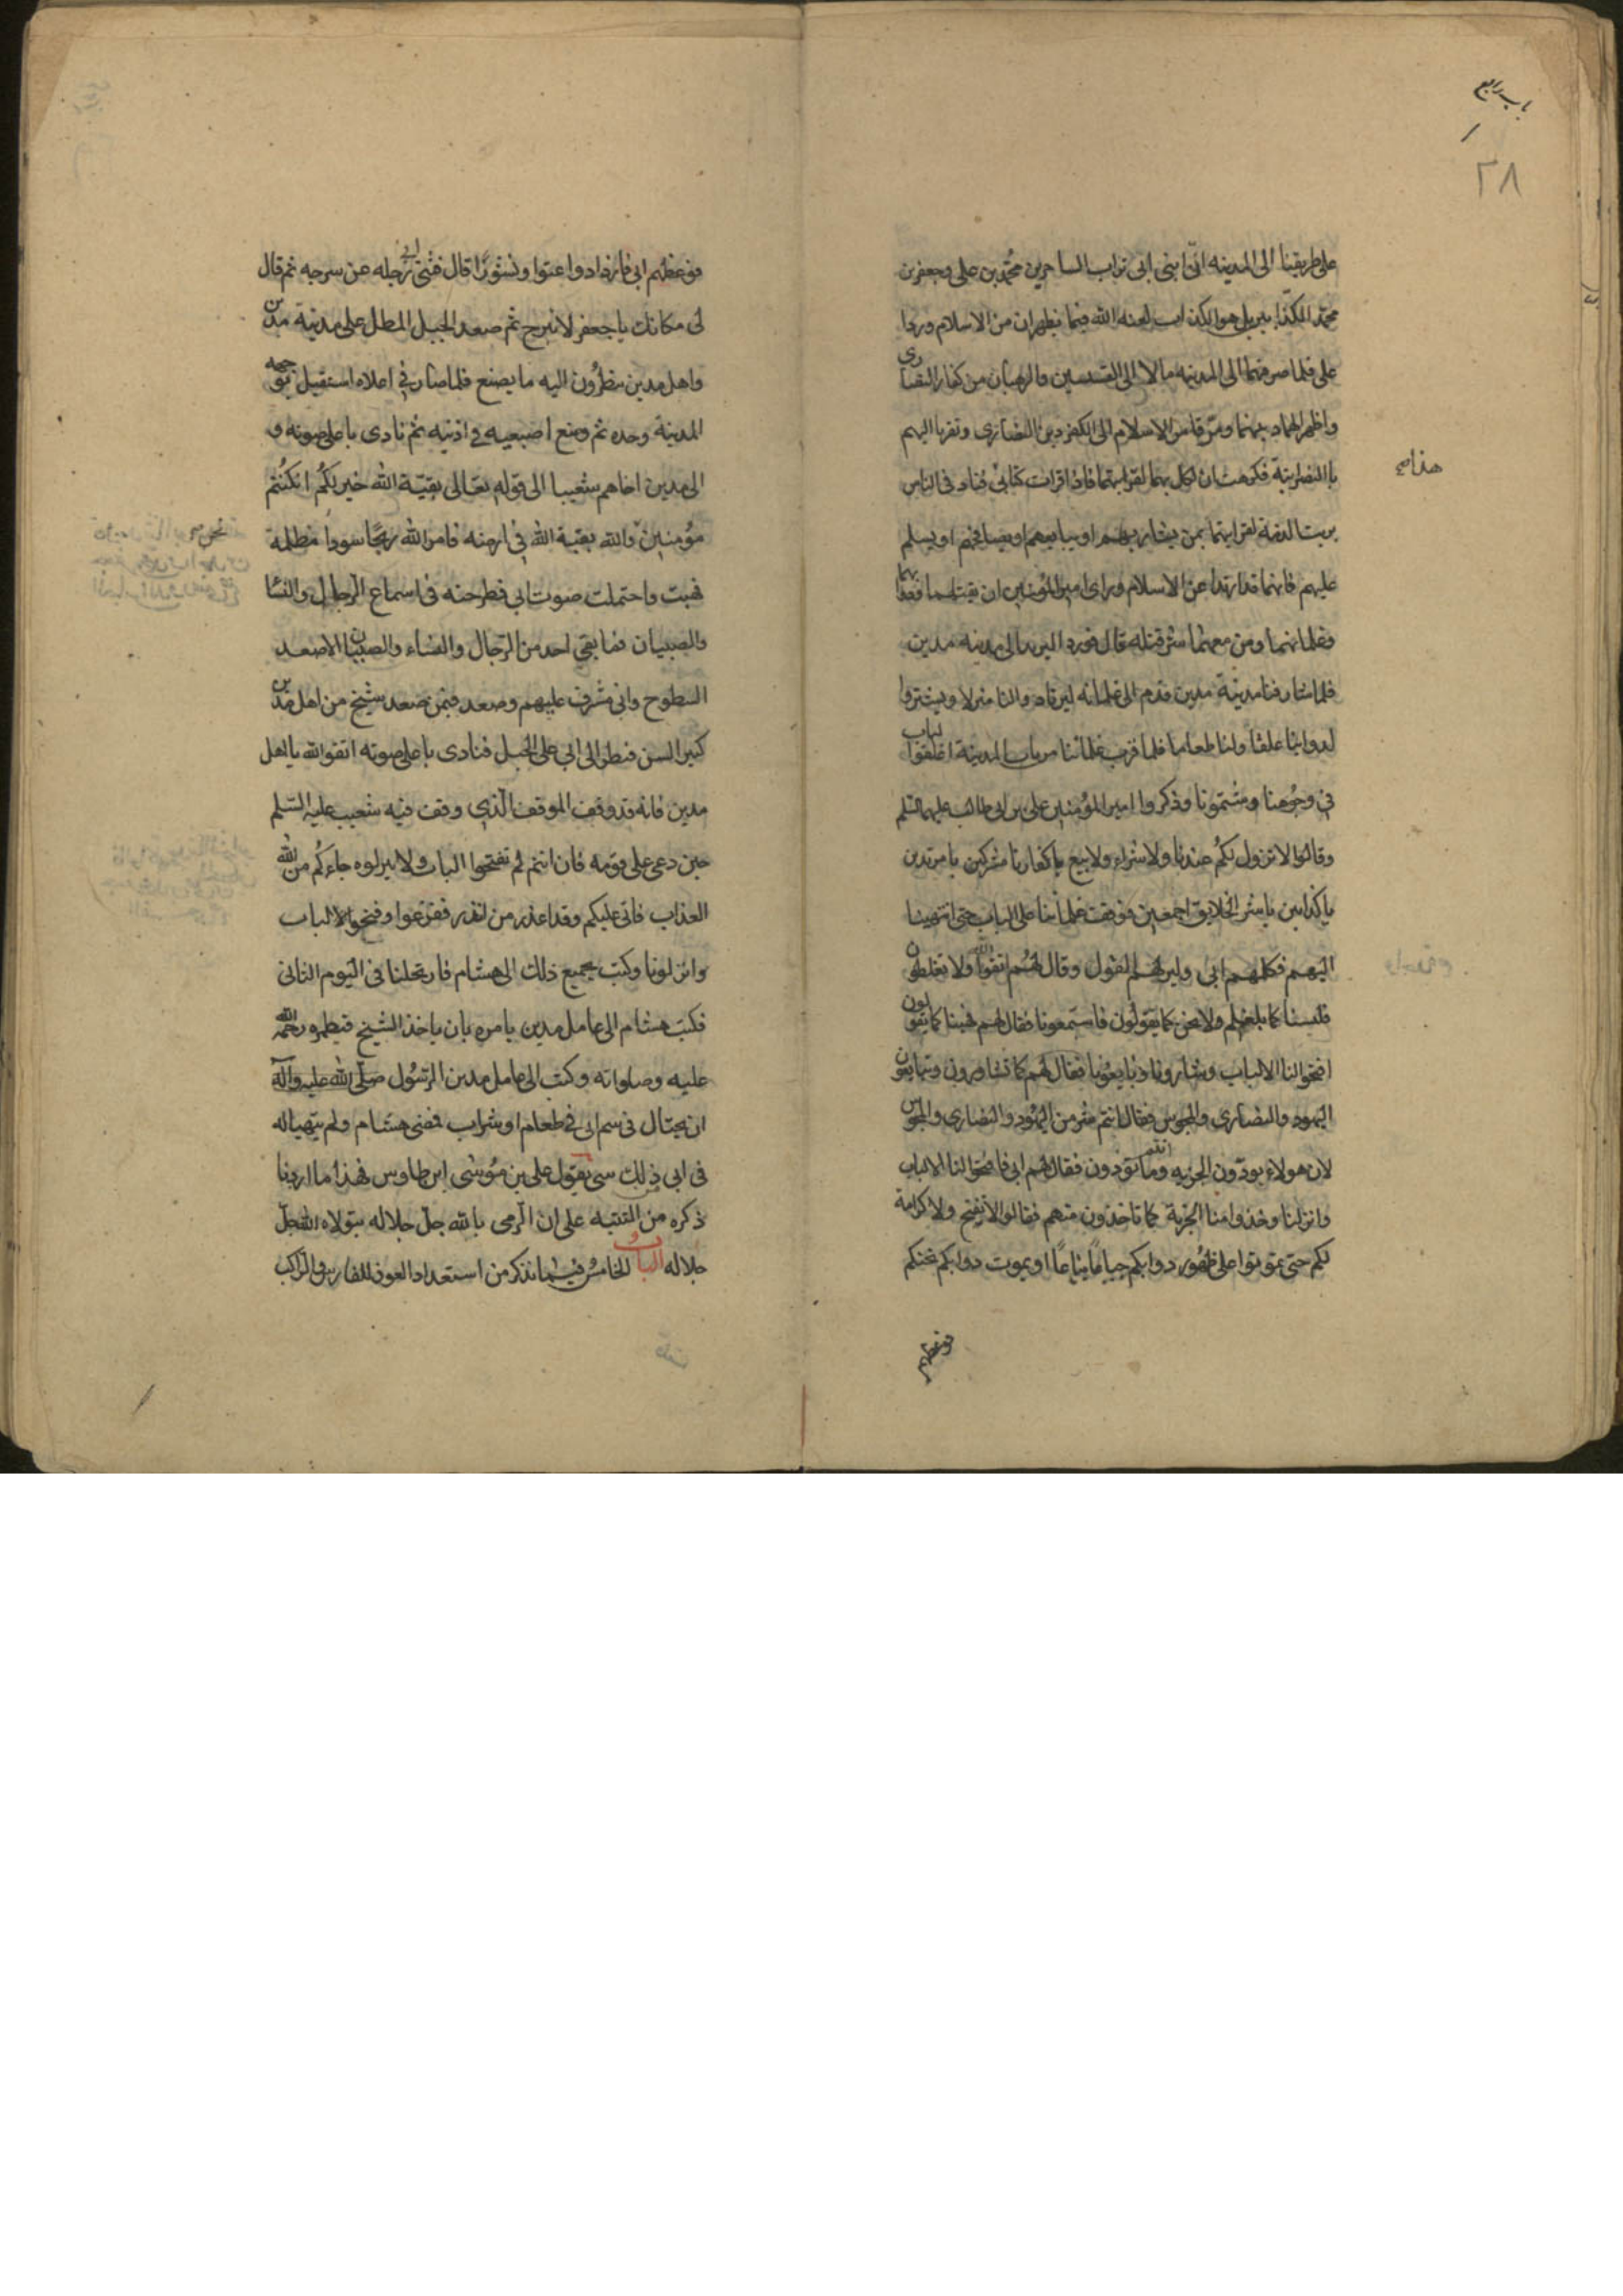 باب رابع
٢٨
على طريقنا الى المدينه انّ ابنى ابى تراب الساحرين محمّد بن على وجعفر بن
محمّد الكذّابين بل هو الكذاب لعنه الله فيما يظهران من الاسلام وردا
على فلما صرفتهما الى المدينه مالا الى القسيسين والرهبان من كفار النصارى
واظهرا لهما دينهما ومرقا من الاسلام الى الكفر دين النصارى وتقربا اليهم
بالنصرانية فكرهت ان انكل بهما لقرابتهما فاذا قرات كتابى فناد فى الناس
برئت الذمة ممن يشاريهم او يبايعهم او يصافحهم او يسلم
عليهم فانهما قد ارتدا عن الاسلام وراى امير المؤمنين ان يقتلهما
وغلمانهما ومن معهما شر قتله قال فورد البريد الى مدينه مدين
فلما شارفنا مدينة مدين قدم ابى غلمانه ليرتادوا لنا منزلا ويشتروا
لدوابنا علفا ولنا طعاما فلما قرب غلماننا من باب المدينة اغلقوا الباب
فى وجوهنا وشتمونا وذكروا امير المؤمنين على بن ابى طالب عليهما السلم
وقالوا لا نزول لكم عندنا ولا شراء ولا بيع يا كفار يا مشركين يا مرتدين
يا كذابين يا شر الخلايق اجمعين فوقفت غلماننا على الباب حتى انتهينا
اليهم فكلمهم ابى ولين لهم القول وقال لهم اتقوا الله ولا تغلطون
فلسنا كما بلغكم ولا نحن كما يقولون فاسمعونا فقال لهم فهبنا كما يقولون
افتحوا لنا الابواب وشارونا وبايعونا فقال لهم كما تشارون وتبايعون
اليهود والنصارى والمجوس فقالوا انتم شر من اليهود والنصارى والمجوس
لان هولاء يودّون الجزيه وانتم ما تودون فقال لهم ابى فافتحوا لنا الالباب
وانزلنا وخذوا منا الجزية كما تاخذون منهم فقالوا لا نفتح ولا كرامة
لكم حتى تموتوا على ظهور دوابكم جياعا نياعا او يموت دوابكم تحتكم
فوعظهم
هذا صح
فوعظهم ابى فازدادوا عتوا ونشوزا قال فثنى ابى رجله عن سرجه ثم قال
لى مكانك يا جعفر لا تبرح ثم صعد الجبل المطل على مدينة مدين
واهل مدين ينظرون اليه ما يصنع فلما صار فى اعلاه استقبل بوجهه
المدينة وحده ثم وضع اصبعيه فى اذنيه ثم نادى باعلى صوته و
الى مدين اخاهم شعيبا الى قوله تعالى بقيّة الله خير لكم ان كنتم
مؤمنين والله بقية الله فى ارضه فامر الله ريحًا سودا مظلمة
فهبت واحتملت صوت ابى فطرحته فى اسماع الرجال والنسا
والصبيان فما بقى احد من الرجال والنساء والصبيان الا صعد
السطوح وابى مشرف عليهم وصعد فيمن صعد شيخ من اهل مدين
كبير السن فنظر الى ابى على الجبل فنادى باعلى صوته اتقوا الله يا اهل
مدين فانه قد وقف الموقف الّذى وقف فيه شعيب عليه السّلم
حين دعى على قومه فان انتم لم تفتحوا الباب ولا تنزلوه جاءكم من الله
العذاب فانى عليكم وقد اعذر من انذر ففزعوا وفتحوا الالباب
وانزلونا وكتب بجميع ذلك الى هشام فارتحلنا فى اليوم الثانى
فكتب هشام الى عامل مدين يامره بان ياخذ الشيخ فيطمره رحمة الله
عليه وصلواته وكتب الى عامل مدين الرسول صلّى الله عليه وآله
ان يحتال فى سم ابى فى طعام او شراب فمضى هشام ولم يتهيا له
فى ابى ذلك شى يقول على بن موسى ابن طاوس فهذا ما اردنا
ذكره من التنبيه على ان الرمى بالله جلّ جلاله يتولاه الله جلّ
جلاله الباب الخامس فيما نذكر من استعداد العون للفارس والراكب